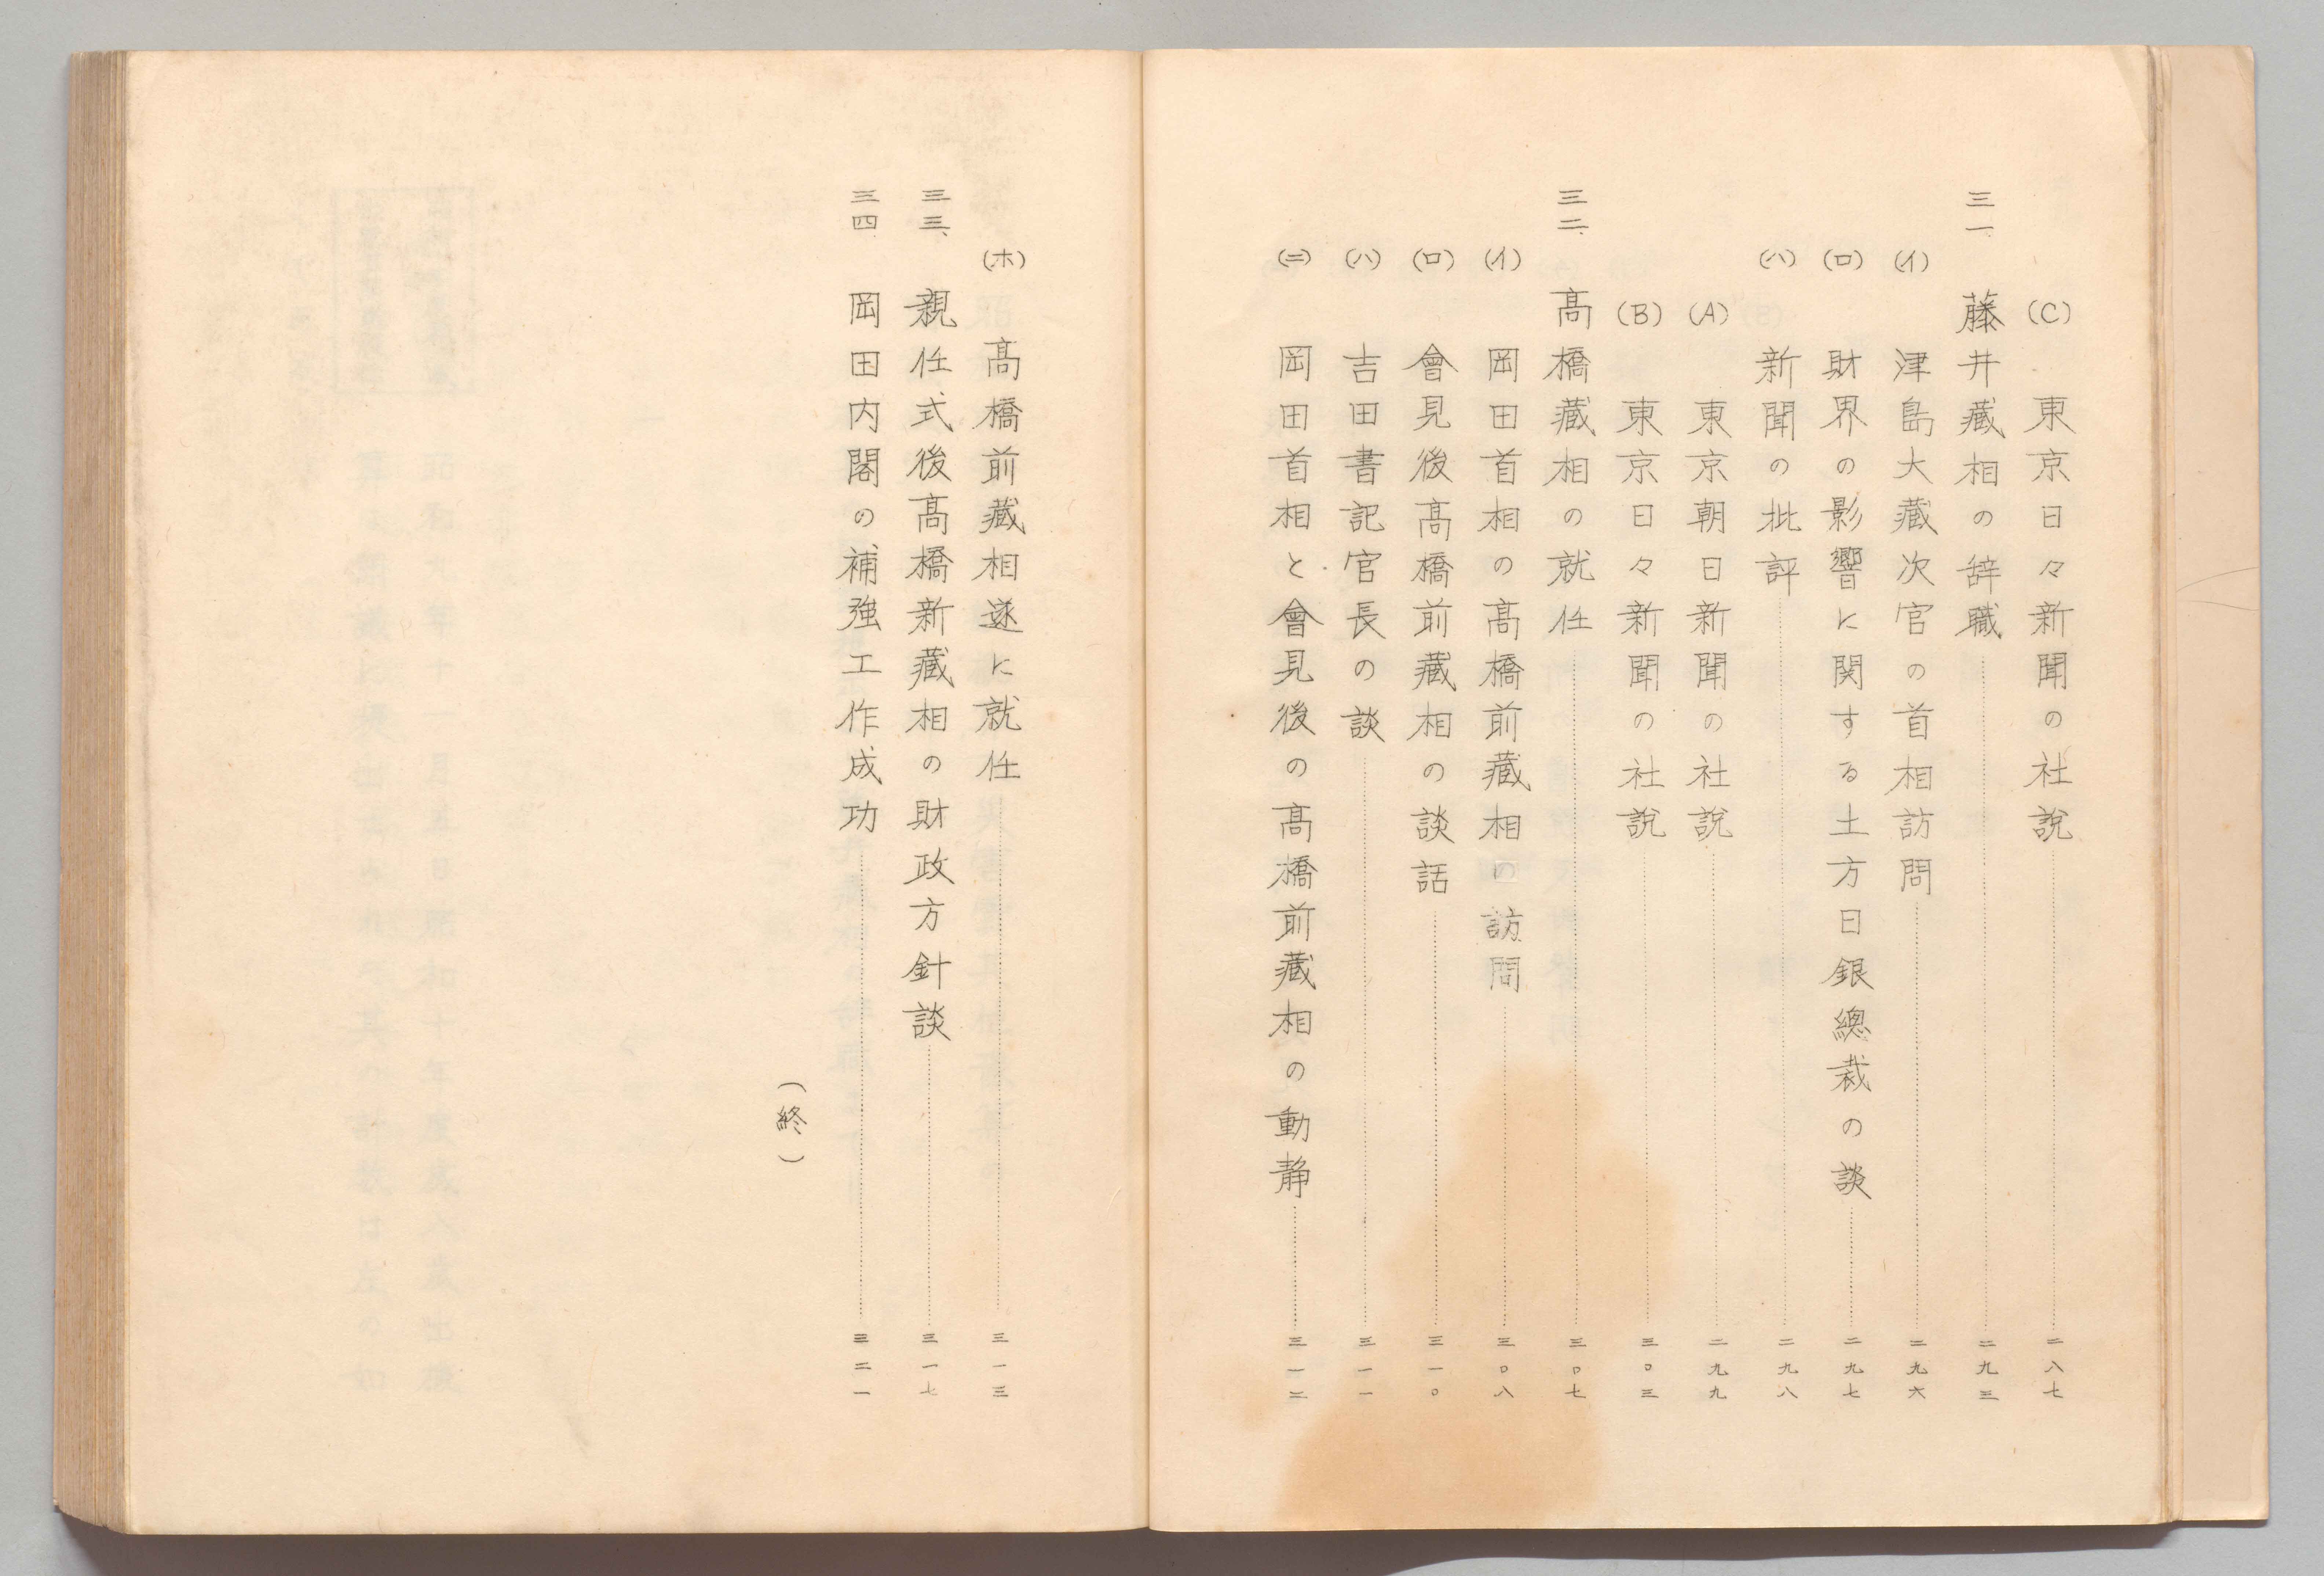 (C) 東京日々新聞の社説…………二八七
三一、藤井藏相の辞職…………二九三
(イ) 津島大藏次官の首相訪問…………二九六
(ロ) 財界の影響に関する土方日銀總裁の談…………二九七
(ハ) 新聞の批評…………二九八
(A) 東京朝日新聞の社説…………二九九
(B) 東京日々新聞の社説…………三〇三
三二、髙橋藏相の就任…………三〇七
(イ) 岡田首相の髙橋前藏相の訪問…………三〇八
(ロ) 會見後髙橋前藏相の談話…………三一〇
(ハ) 吉田書記官長の談…………三一一
(ニ) 岡田首相と會見後の髙橋前藏相の動静…………三一二
(ホ) 髙橋前藏相遂に就任…………三一三
三三、親任式後髙橋新藏相の財政方針談…………三一七
三四、岡田内閣の補強工作成功…………三二一
(終)